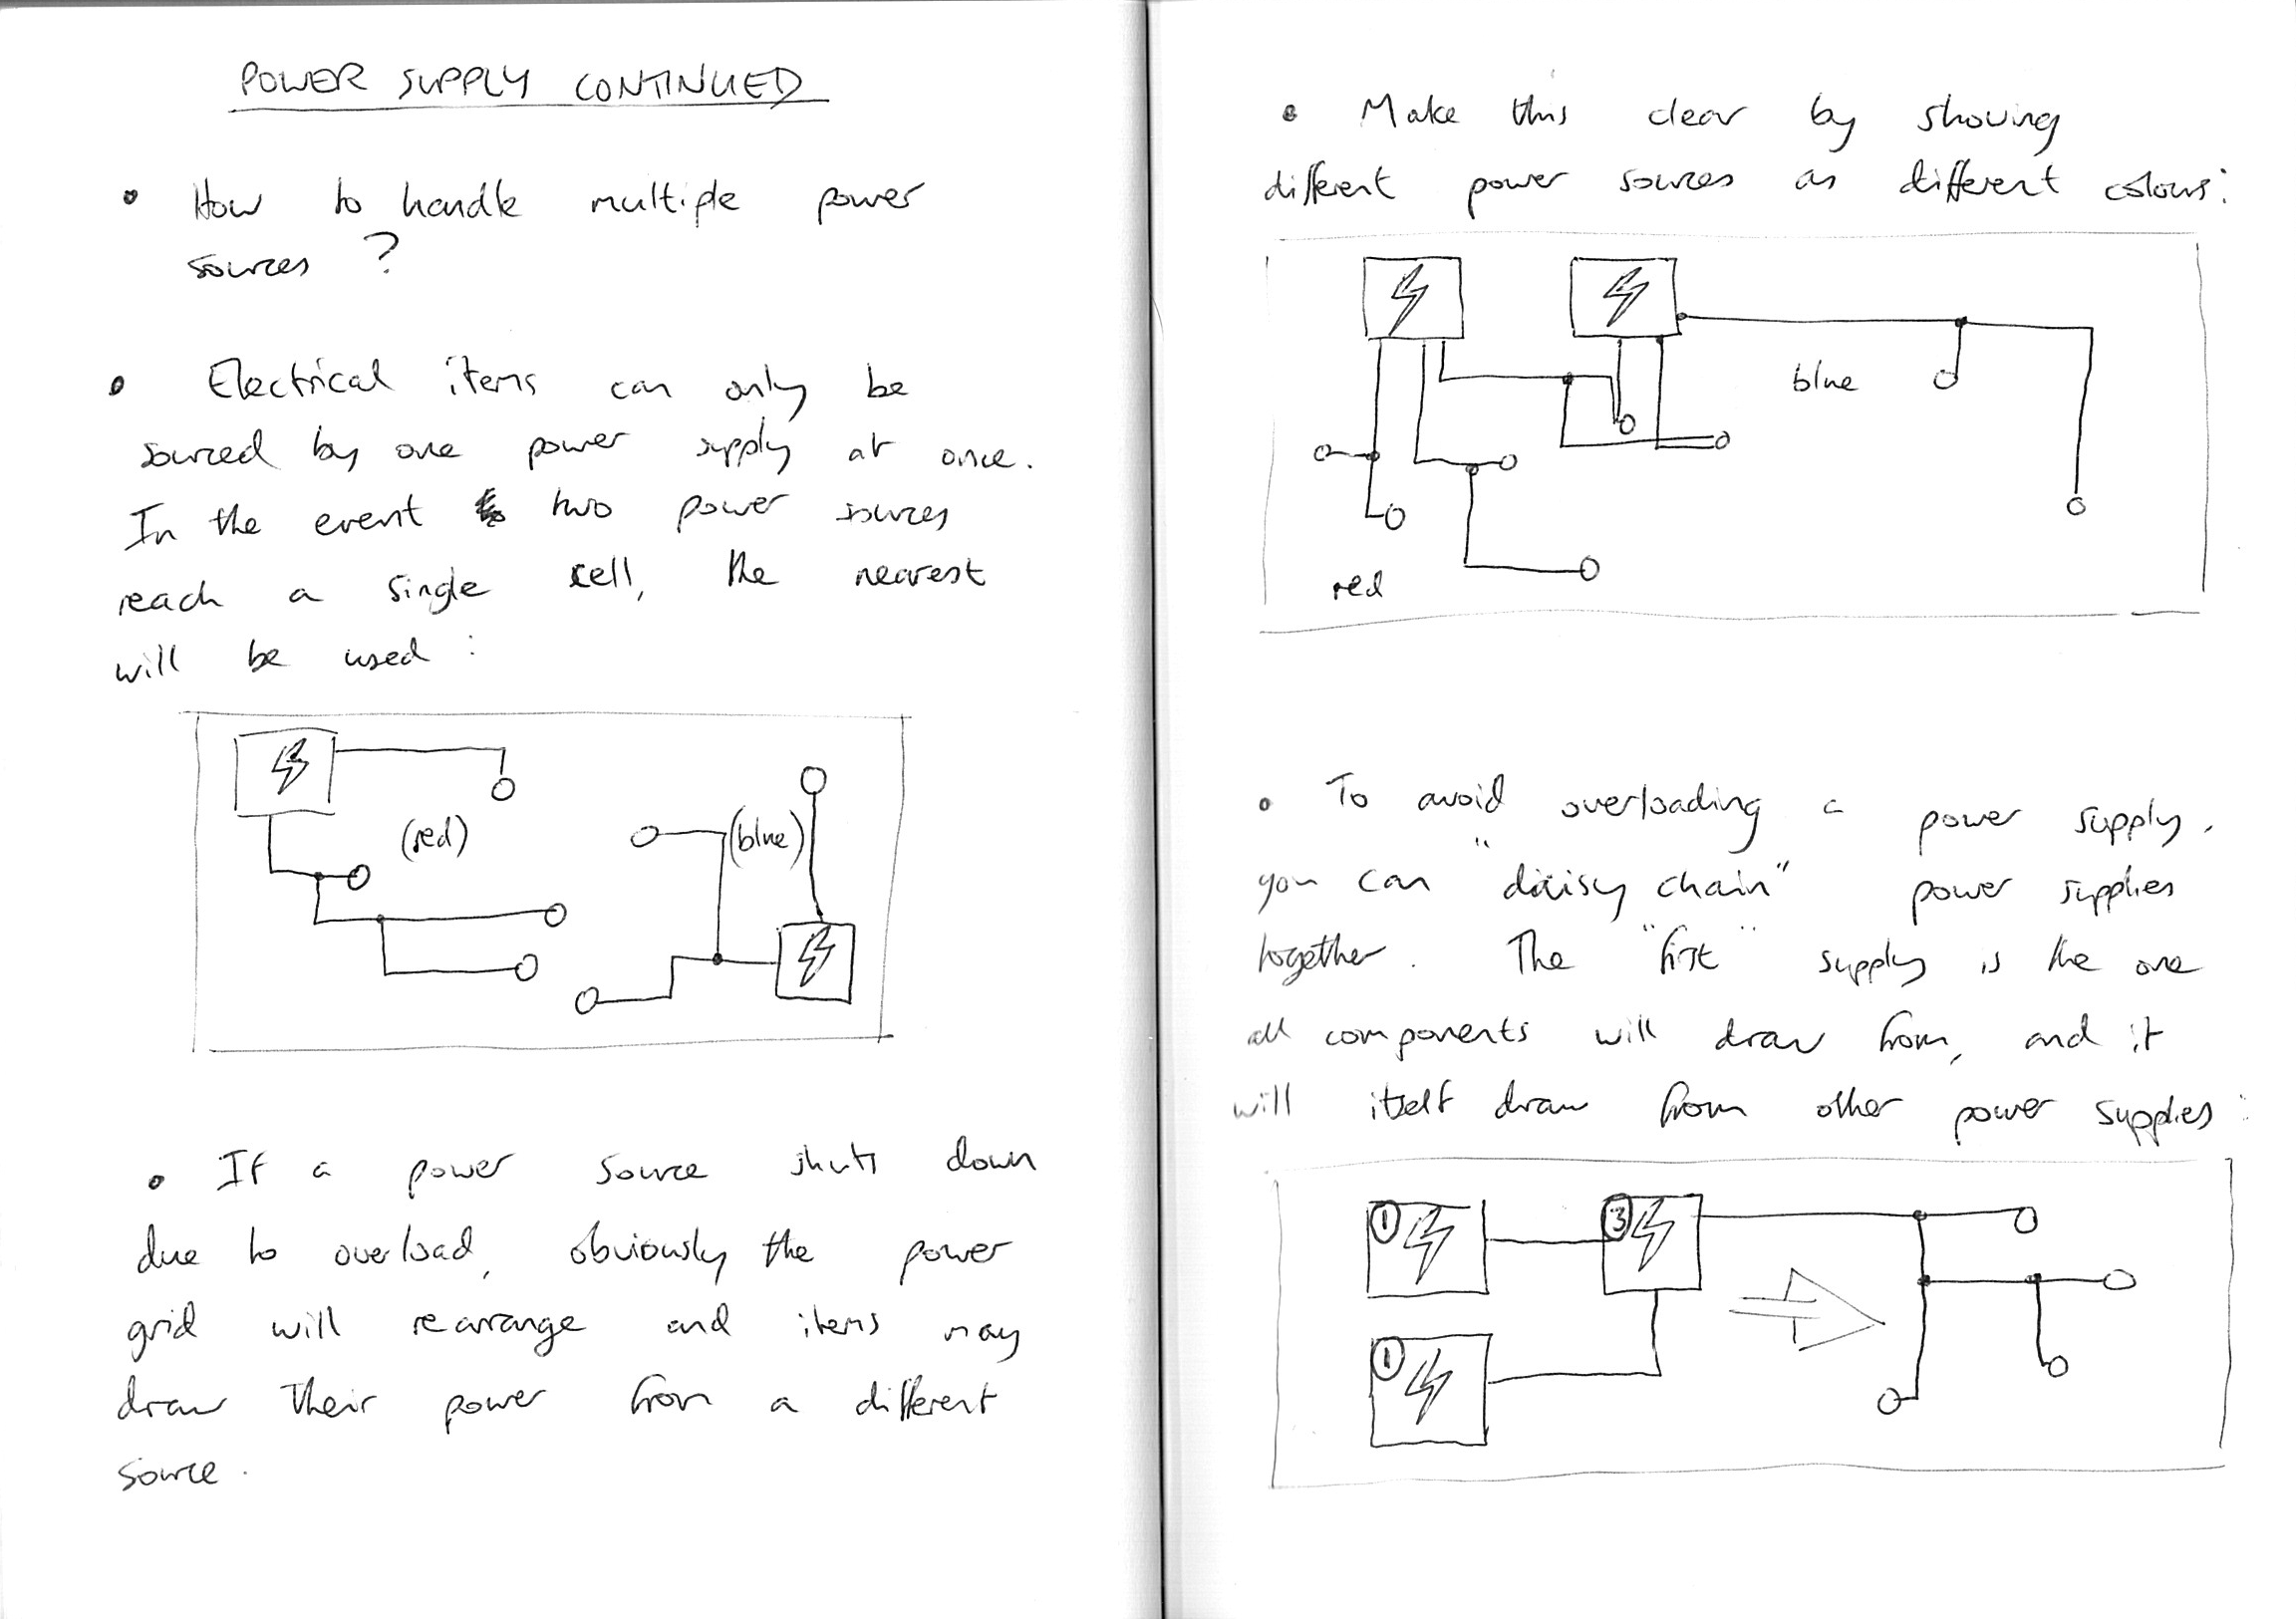 POWER SUPPLY CONTINUED
• How to handle multiple power
sources ?
• Electrical items can only be
sourced by one power supply at once.
In the event two power sources
reach a single cell, the nearest
will be used :
(red)
(blue)
• If a power source shuts down
due to overload, obviously the power
grid will rearrange and items may
draw their power from a different
source.
• Make this clear by showing
different power sources as different colours:
blue
red
• To avoid overloading a power supply,
you can "daisy chain" power supplies
together. The "first" supply is the one
all components will draw from, and it
will itself draw from other power supplies:
1
3
1